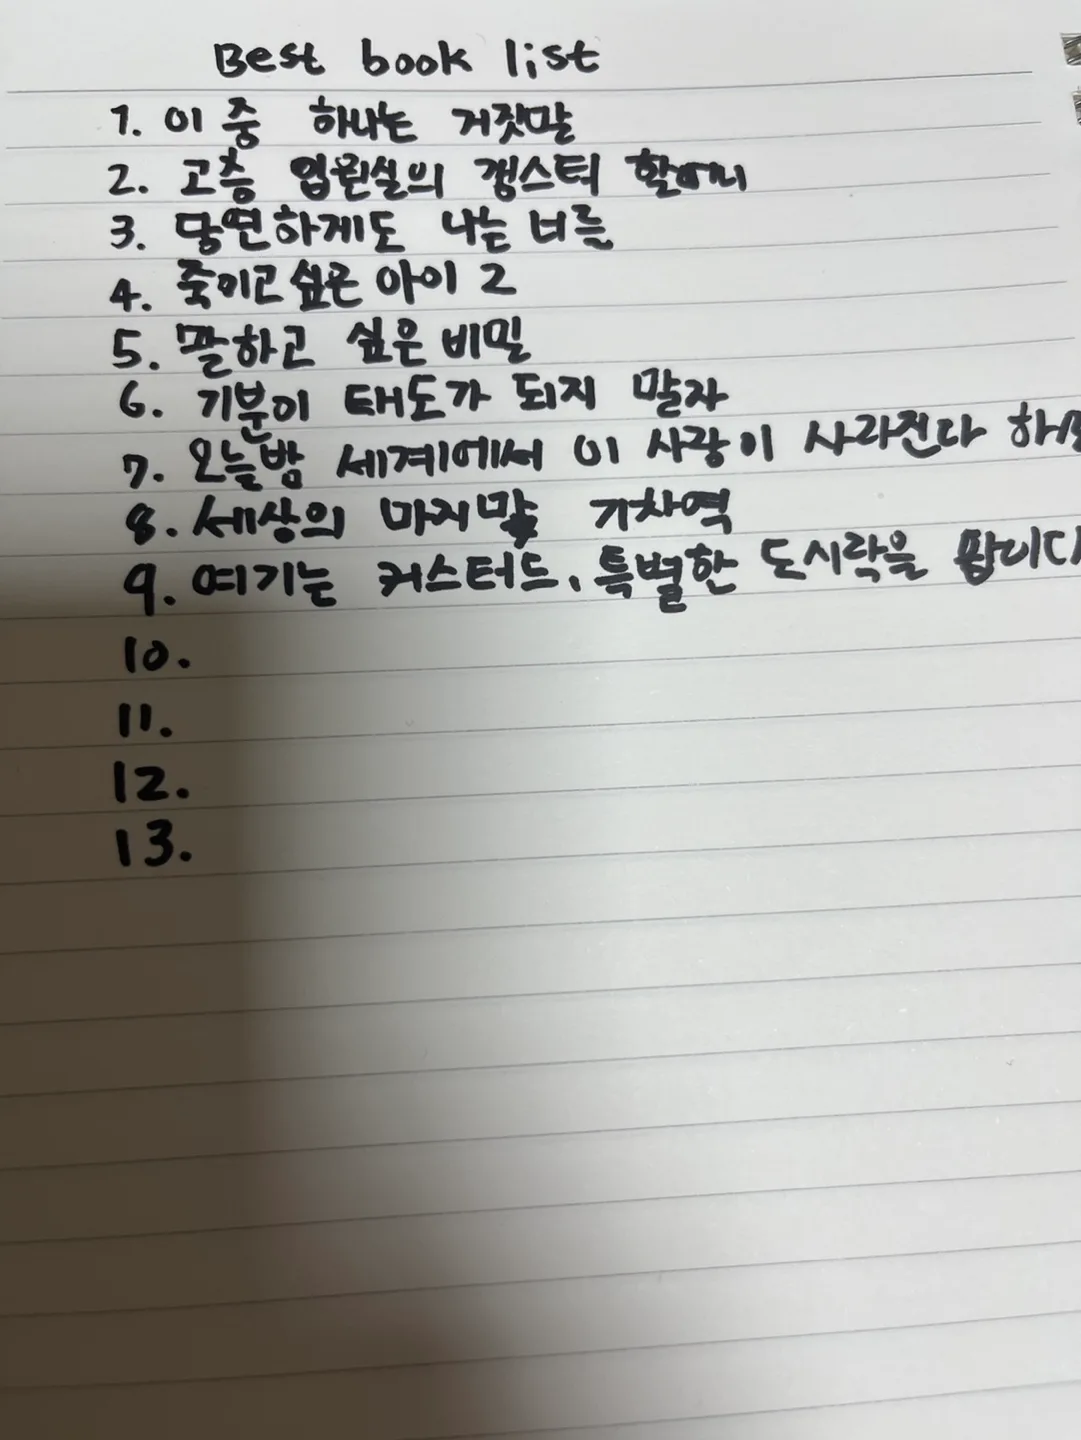 Best book list
1. 이 중 하나는 거짓말
2. 고층 입원실의 갱스터 할머니
3. 당연하게도 나는 너를
4. 죽이고 싶은 아이 2
5. 말하고 싶은 비밀
6. 기분이 태도가 되지 말자
7. 오늘밤 세계에서 이 사랑이 사라진다 하
8. 세상의 마지막 기차역
9. 여기는 커스터드, 특별한 도시락을 팝니다
10.
11.
12.
13.